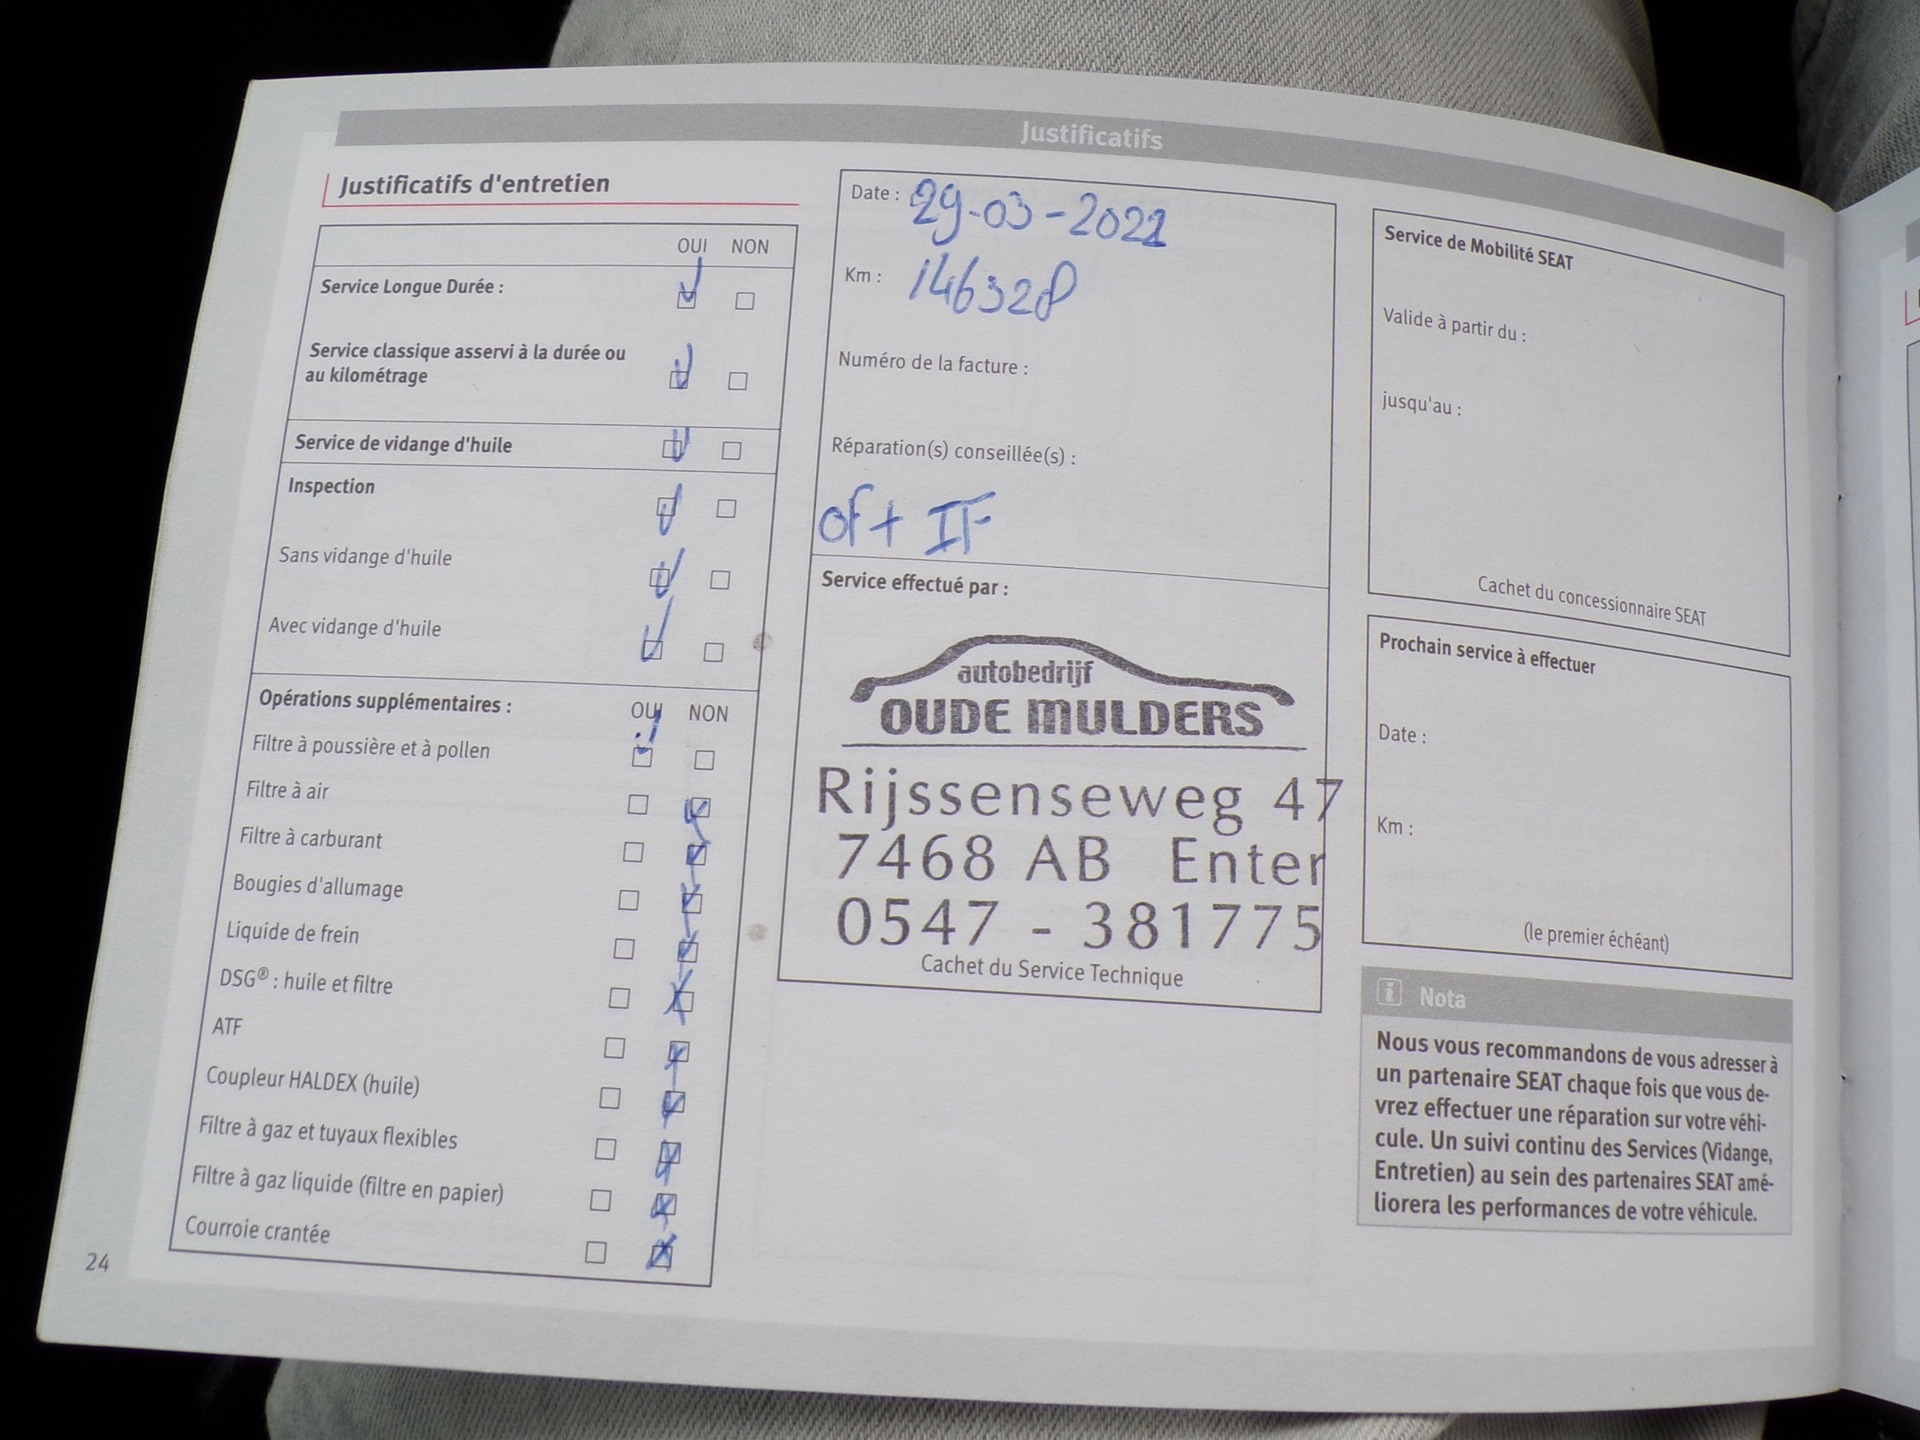 Justificatifs
Justificatifs d'entretien
OUI NON
Service Longue Durée :
Service classique asservi à la durée ou
au kilométrage
Service de vidange d'huile
Inspection
Sans vidange d'huile
Avec vidange d'huile
Opérations supplémentaires : OUI NON
Filtre à poussière et à pollen
Filtre à air
Filtre à carburant
Bougies d'allumage
Liquide de frein
DSG® : huile et filtre
ATF
Coupleur HALDEX (huile)
Filtre à gaz et tuyaux flexibles
Filtre à gaz liquide (filtre en papier)
Courroie crantée
24
Date : 29-03-2022
Km : 146328
Numéro de la facture :
Réparation(s) conseillée(s) :
of + IF
Service effectué par :
autobedrijf
OUDE MULDERS
Rijssenseweg 47
7468 AB Enter
0547 - 381775
Cachet du Service Technique
Service de Mobilité SEAT
Valide à partir du :
jusqu'au :
Cachet du concessionnaire SEAT
Prochain service à effectuer
Date :
Km :
(le premier échéant)
Nota
Nous vous recommandons de vous adresser à
un partenaire SEAT chaque fois que vous de-
vrez effectuer une réparation sur votre véhi-
cule. Un suivi continu des Services (Vidange,
Entretien) au sein des partenaires SEAT amé-
liorera les performances de votre véhicule.